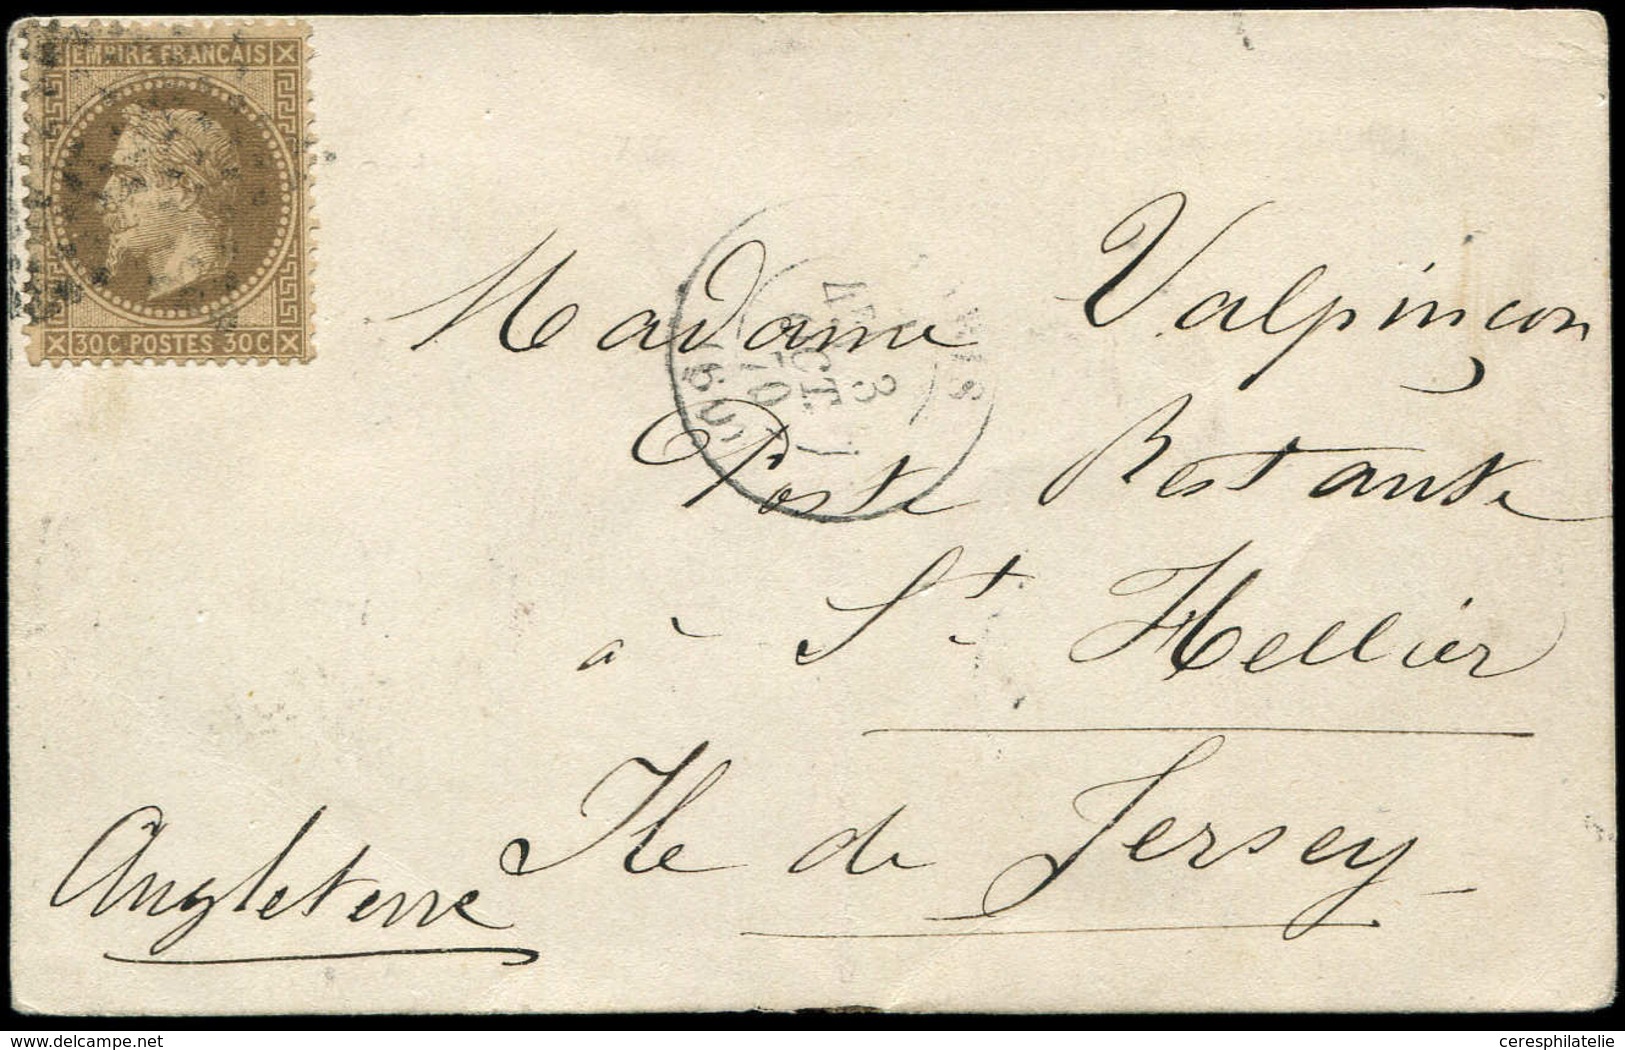 EMPIRE FRANCAIS
30C POSTES 30C
Madame Valpinçon
Poste Restante
à St Hellier
Ile de Jersey
Angleterre
PARIS
4E
3
OCT.
70
www.delcampe.net
ceresphilatelie